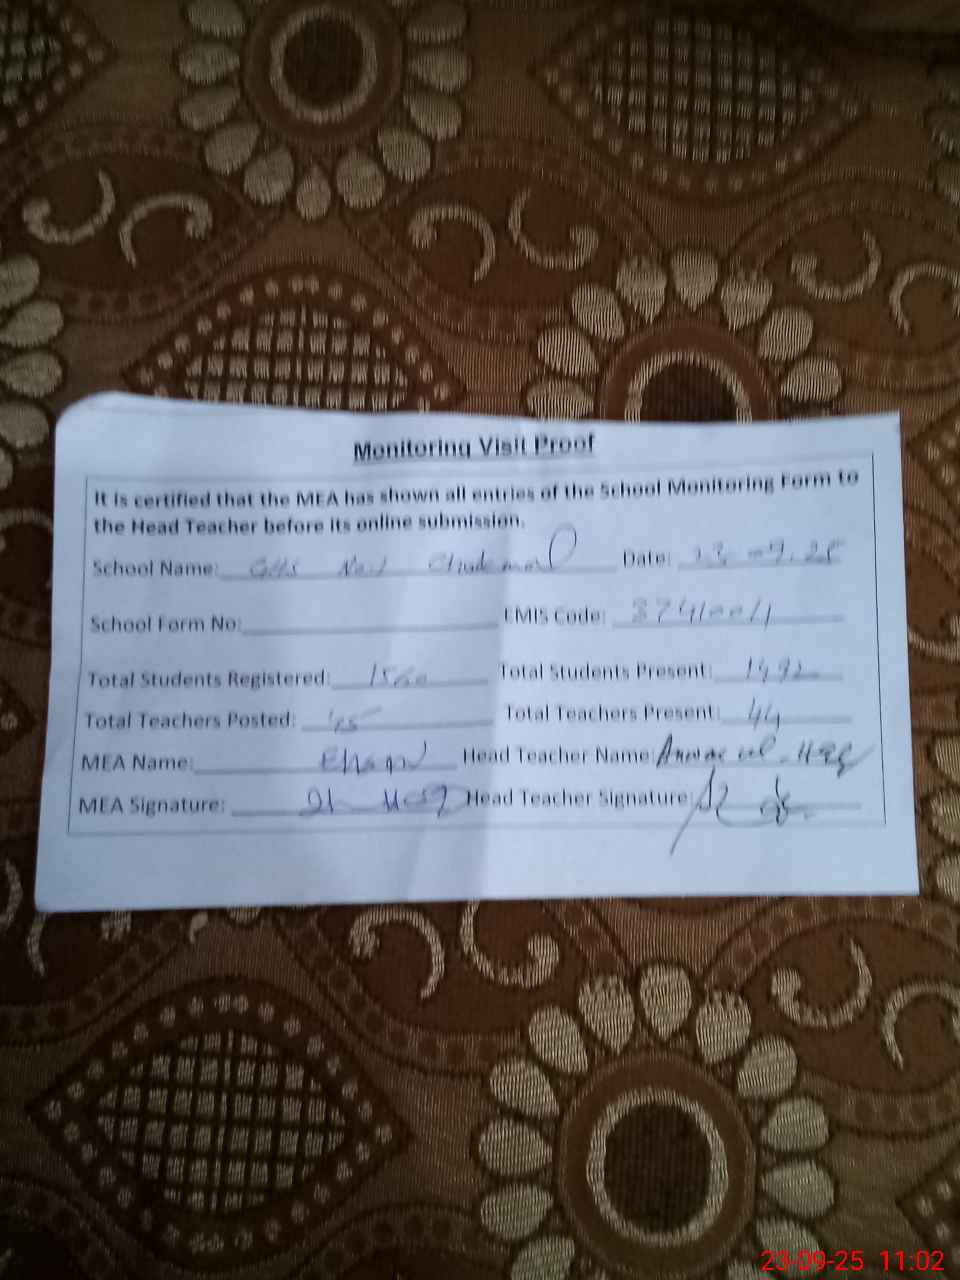 Monitoring Visit Proof
It is certified that the MEA has shown all entries of the School Monitoring Form to
the Head Teacher before its online submission.
School Name: GHS No.1 Date: 23-09-25
School Form No: EMIS Code:
Total Students Registered: Total Students Present: 1492
Total Teachers Posted: 45 Total Teachers Present: 44
MEA Name: Head Teacher Name:
MEA Signature: Head Teacher Signature:
23-09-25 11:02